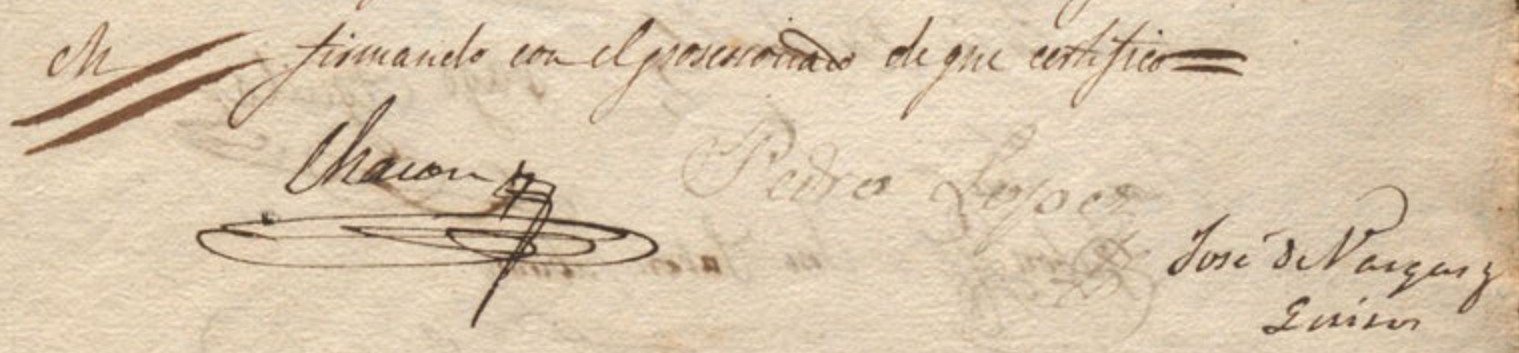 firmando con el posesionado de que certifico
Chacon
Pedro Lopez
José de Vargas y